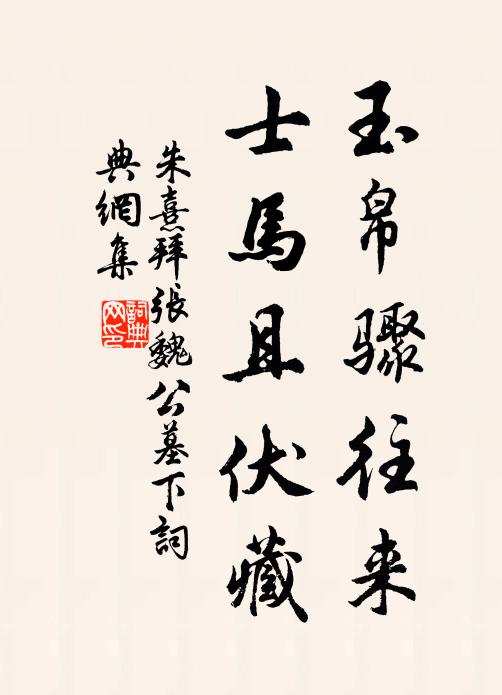 玉帛骤往来
士馬且伏藏
朱熹拜張魏公墓下詞
典網集
詞典網印